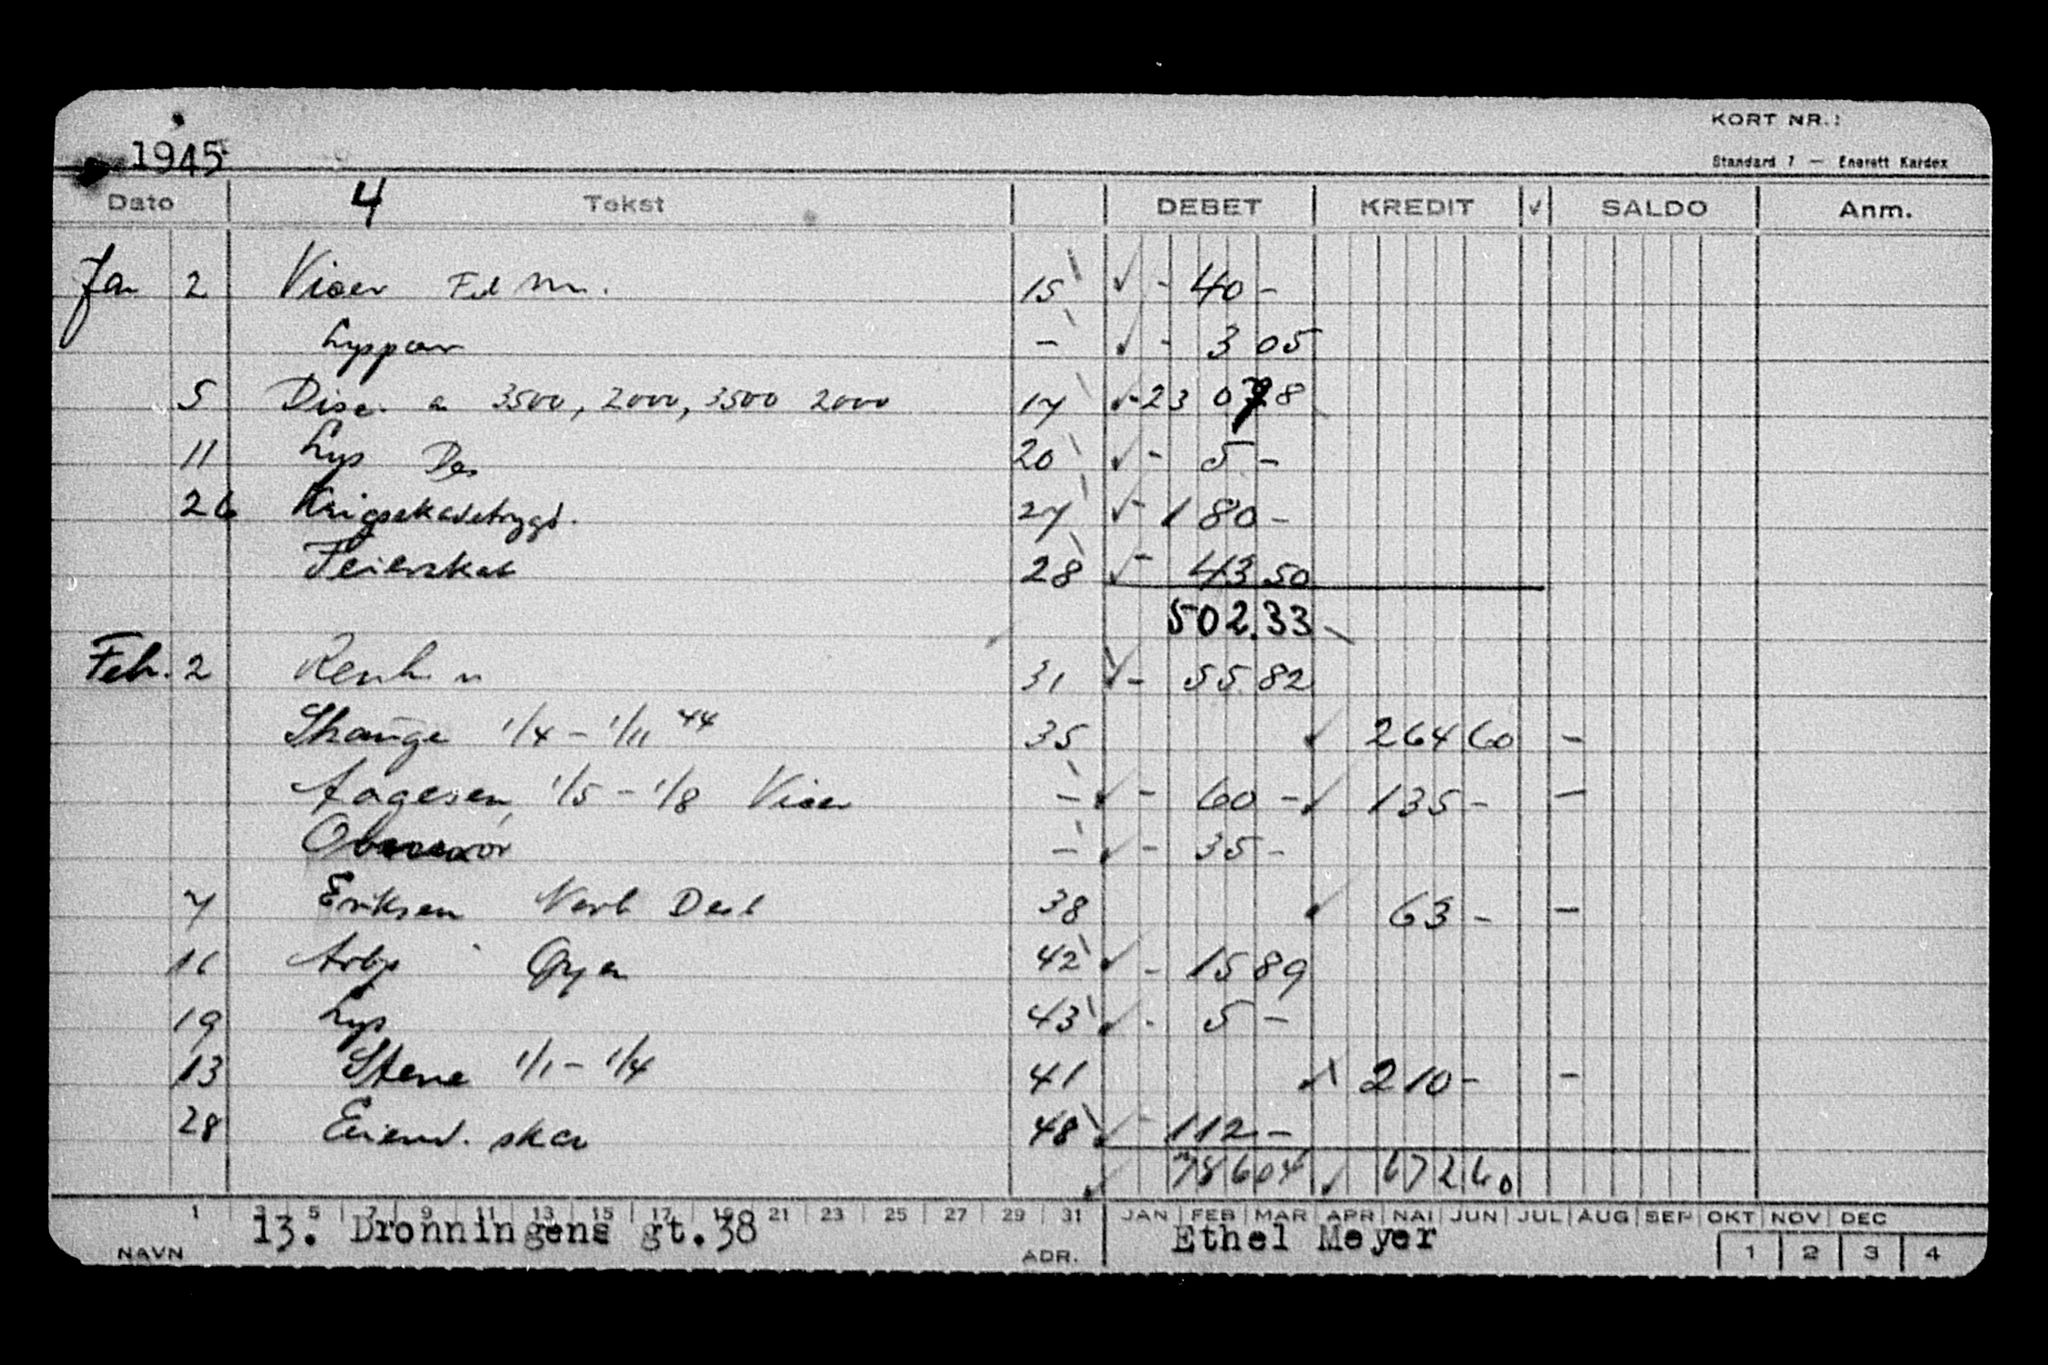 KORT NR.:
1945
Standard 7 — Enerett Kardex
Dato 4 Tekst DEBET KREDIT √ SALDO Anm.
Jan 2 Viser 15 √ - 40 -
Lyspær - √ - 3 05
5 Disc. a 3500, 2000, 3500 2000 17 √ - 230 78
11 Lys 20 √ - 5 -
26 Krigsskadetrygd. 27 √ - 180 -
Feierskat 28 √ - 43 50
502.33
Feb. 2 Renh. 31 √ - 55 82
Skauge 1/4 - 1/11 44 35 √ 264 60 -
Aagesen 1/5 - 1/8 Viser - √ - 60 - √ 135 - -
- √ - 35 -
7 Eriksen 38 √ 63 - -
16 42 √ - 15 89
19 Lys 43 √ - 5 -
13 Stene 1/1 - 1/4 41 √ 210 - -
28 Eiend. skat 48 √ - 112 -
√ 786 04 √ 672 60
1 3 5 7 9 11 13 15 17 19 21 23 25 27 29 31 JAN FEB MAR APR MAI JUN JUL AUG SEP OKT NOV DEC
NAVN 13. Dronningens gt.38 ADR. Ethel Meyer 1 2 3 4